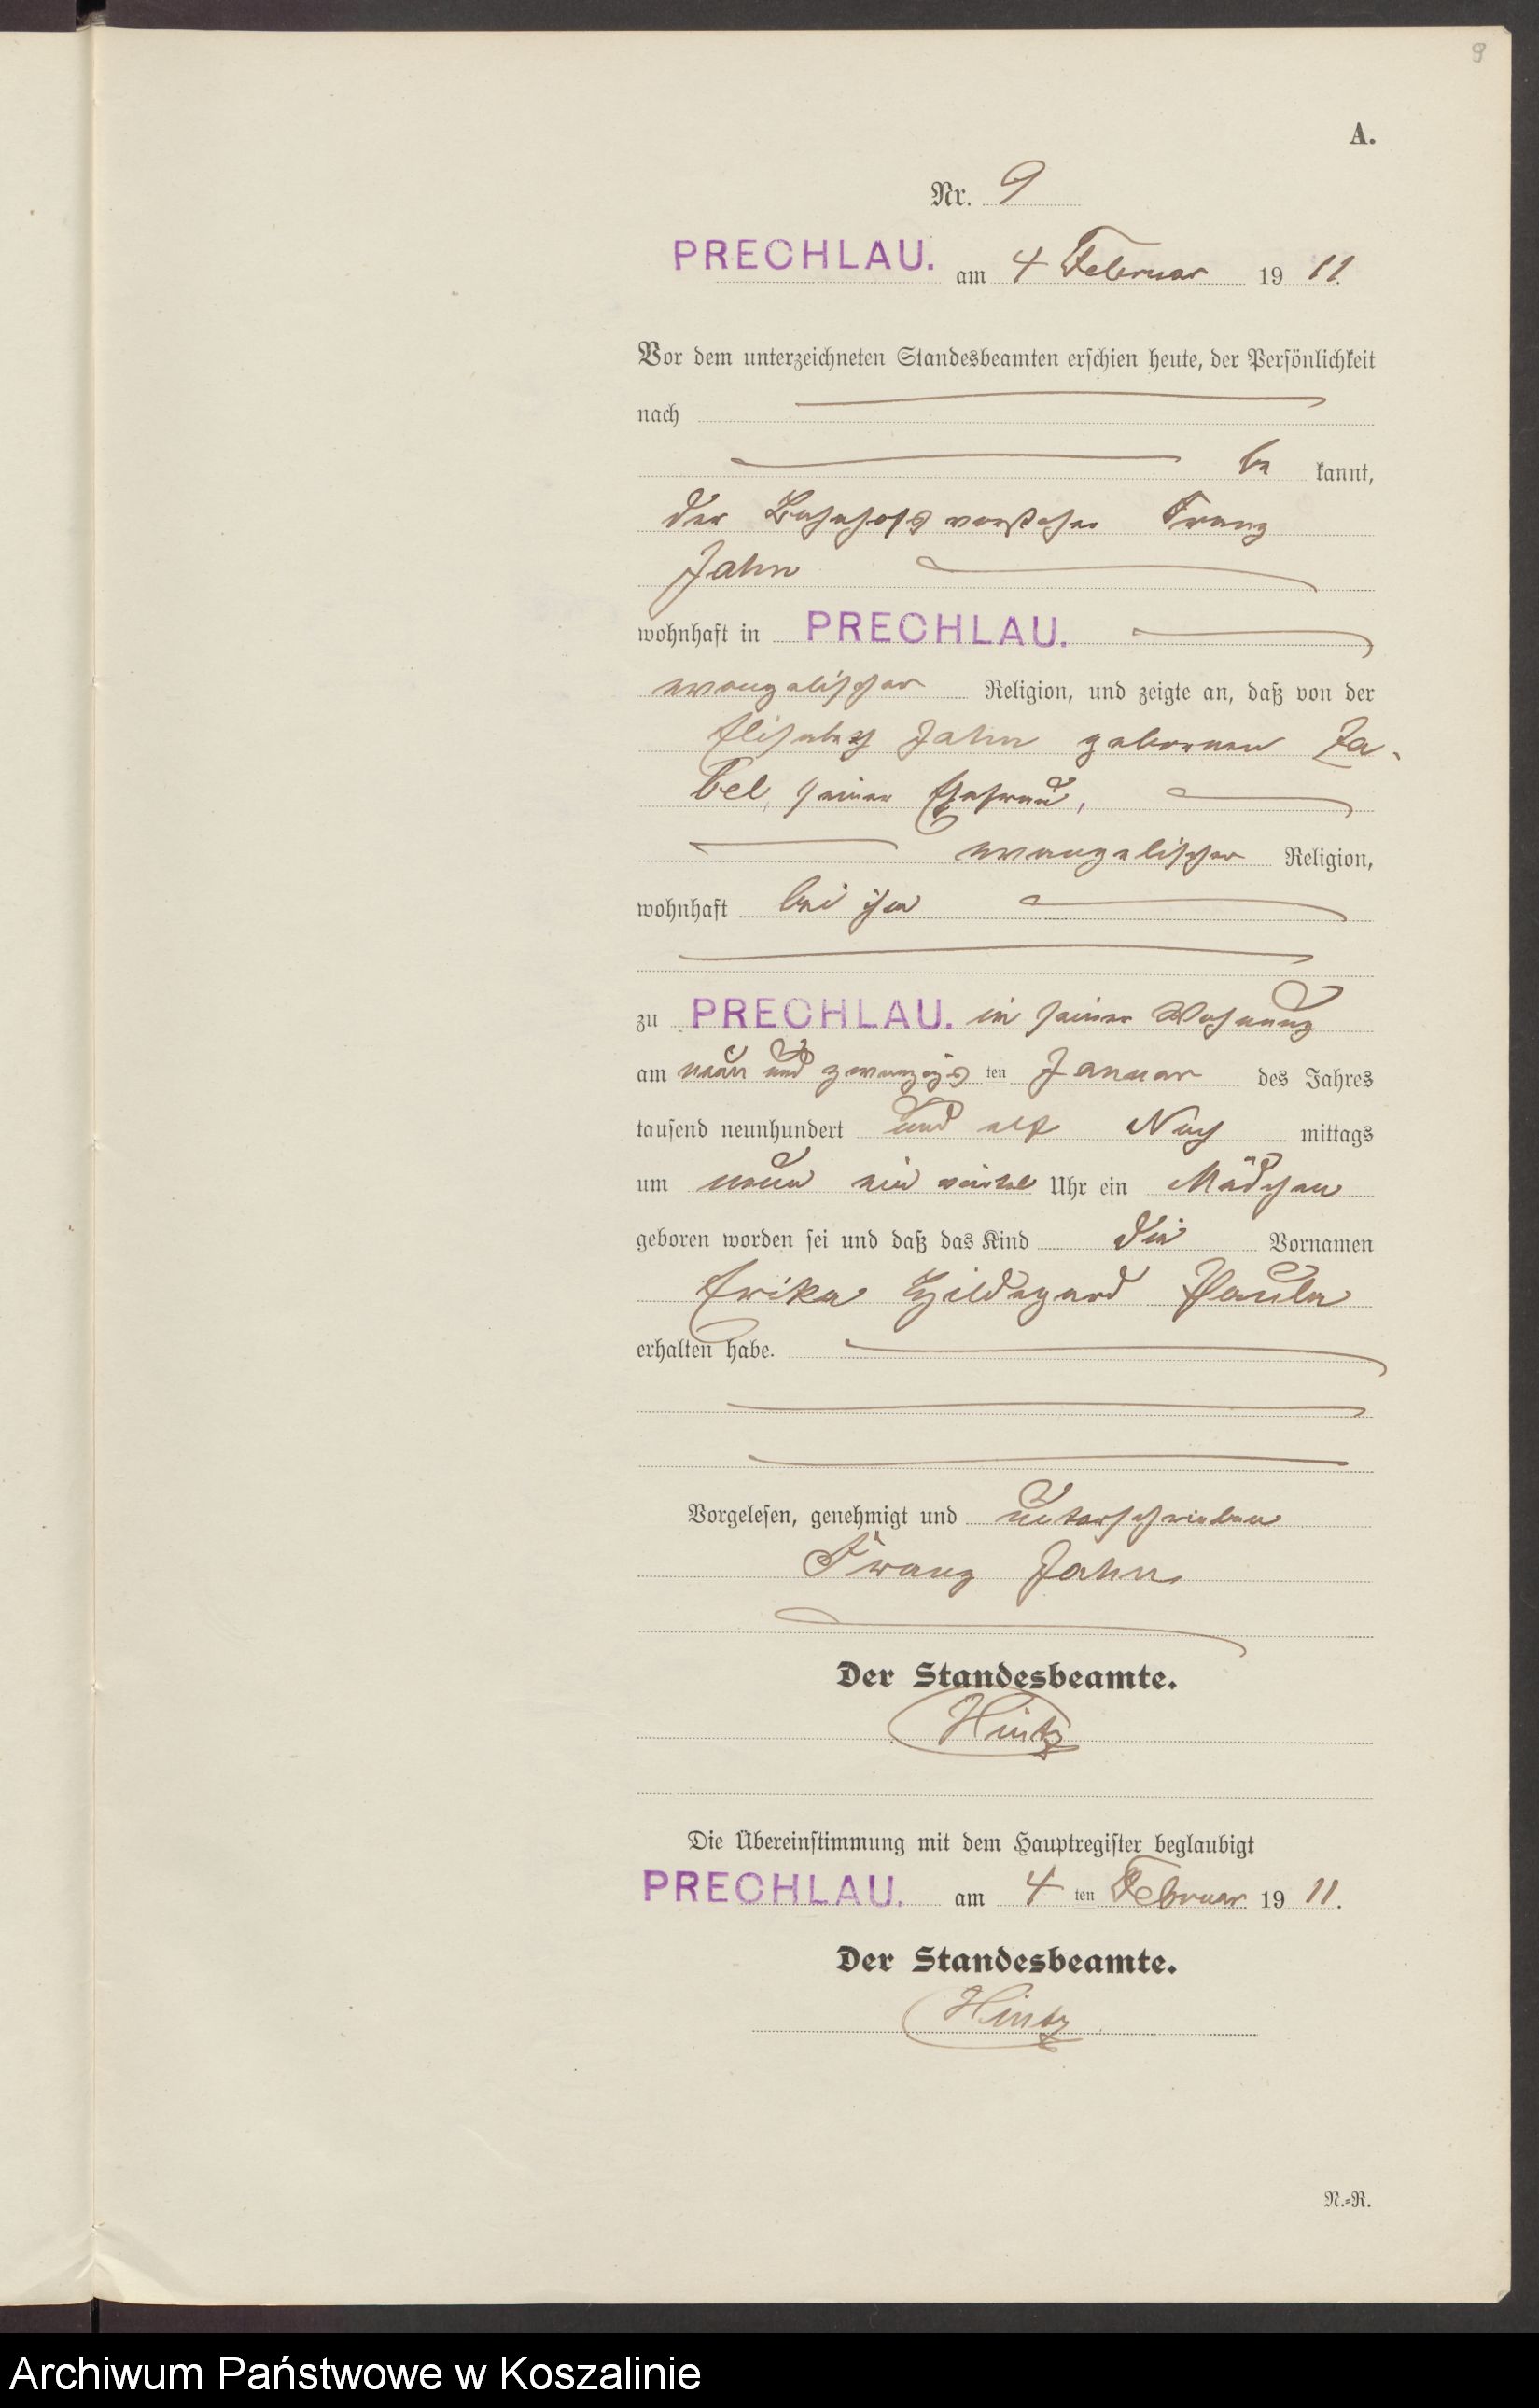 9
A.
Nr. 9
PRECHLAU. am 4 Februar 19 11.
Vor dem unterzeichneten Standesbeamten erschien heute, der Persönlichkeit
nach
be kannt,
der Bahnhofsvorsteher Franz
Jahn
wohnhaft in PRECHLAU.
evangelischer Religion, und zeigte an, daß von der
Elisabeth Jahn geborenen Za-
bel, seiner Ehefrau,
evangelischer Religion,
wohnhaft bei ihm
zu PRECHLAU. in seiner Wohnung
am neun und zwanzigsten Januar des Jahres
tausend neunhundert und elf Nach mittags
um neun ein viertel Uhr ein Mädchen
geboren worden sei und daß das Kind die Vornamen
Erika Hildegard Paula
erhalten habe.
Vorgelesen, genehmigt und unterschrieben
Franz Jahn
Der Standesbeamte.
Hintz
Die Übereinstimmung mit dem Hauptregister beglaubigt
PRECHLAU. am 4 ten Februar 19 11.
Der Standesbeamte.
Hintz
N.=R.
Archiwum Państwowe w Koszalinie